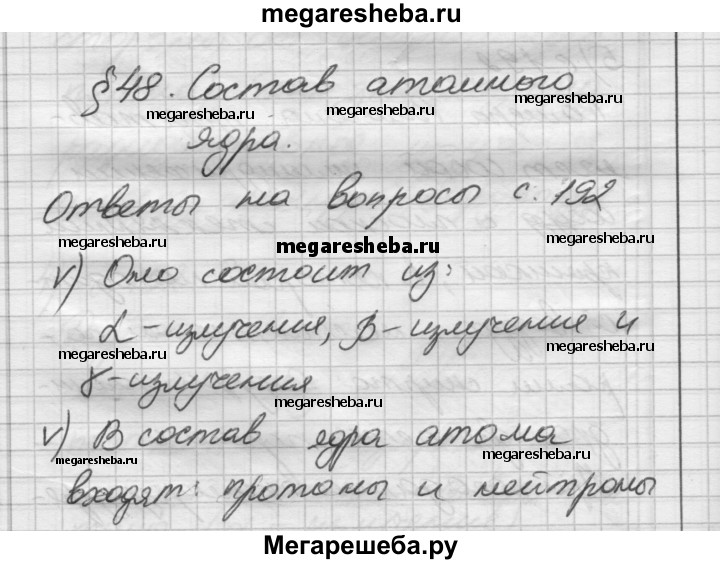 megaresheba.ru
§48. Состав атомного
megaresheba.ru
megaresheba.ru
ядра.
Ответы на вопросы с. 192
megaresheba.ru
megaresheba.ru
megaresheba.ru
v) Оно состоит из:
α-излучения, β-излучение и
megaresheba.ru
megaresheba.ru
γ-излучения
megaresheba.ru
v) В состав ядра атома
megaresheba.ru
megaresheba.ru
входят: протоны и нейтроны
Мегарешеба.ру